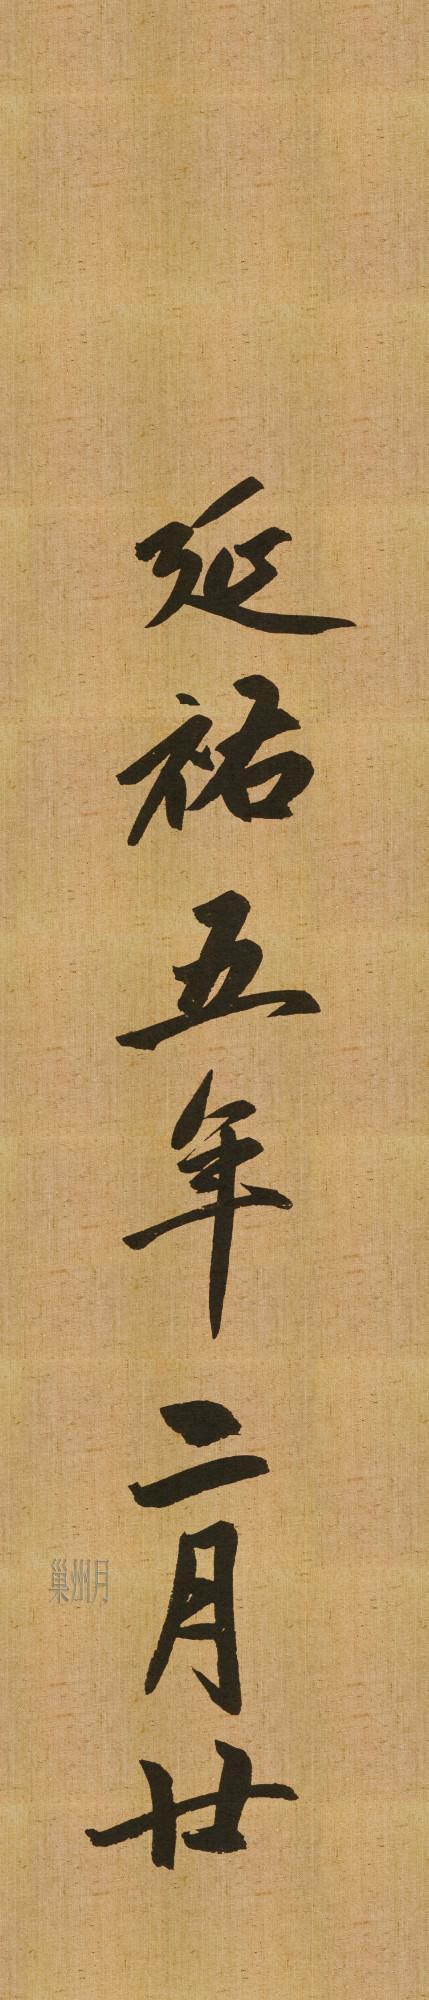 延祐五年二月廿
巢州月